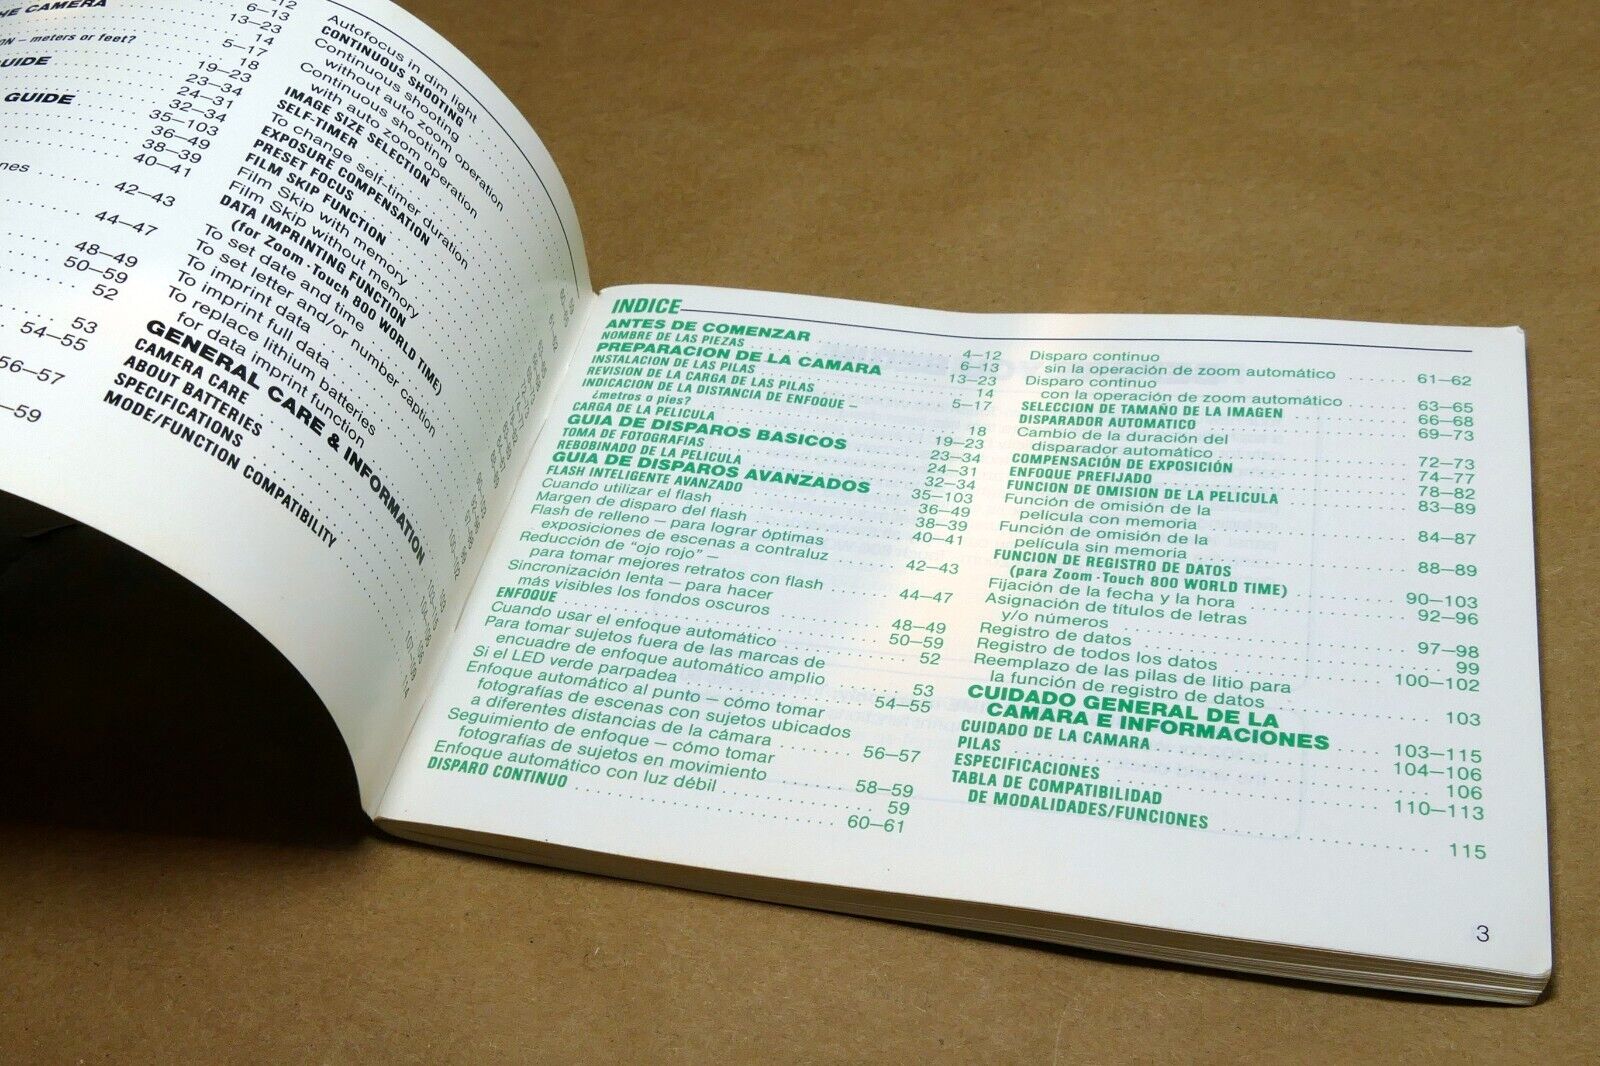 HE CAMERA
ON – meters or feet?
UIDE
GUIDE
nes
12
6–13
13–23
14
5–17
18
19–23
23–34
24–31
32–34
35–103
36–49
38–39
40–41
42–43
44–47
48–49
50–59
52
53
54–55
56–57
–59
Autofocus in dim light
CONTINUOUS SHOOTING
Continuous shooting
without auto zoom operation
Continuous shooting
with auto zoom operation
IMAGE SIZE SELECTION
SELF-TIMER
To change self-timer duration
EXPOSURE COMPENSATION
PRESET FOCUS
FILM SKIP FUNCTION
Film Skip with memory
Film Skip without memory
DATA IMPRINTING FUNCTION
(for Zoom·Touch 800 WORLD TIME)
To set date and time
To set letter and/or number caption
To imprint data
To imprint full data
To replace lithium batteries
for data imprint function
GENERAL CARE & INFORMATION
CAMERA CARE
ABOUT BATTERIES
SPECIFICATIONS
MODE/FUNCTION COMPATIBILITY
INDICE
ANTES DE COMENZAR
NOMBRE DE LAS PIEZAS 4–12
PREPARACION DE LA CAMARA 6–13
INSTALACION DE LAS PILAS 13–23
REVISION DE LA CARGA DE LAS PILAS 14
INDICACION DE LA DISTANCIA DE ENFOQUE – 5–17
¿metros o pies?
CARGA DE LA PELICULA 18
GUIA DE DISPAROS BASICOS 19–23
TOMA DE FOTOGRAFIAS 23–34
REBOBINADO DE LA PELICULA 24–31
GUIA DE DISPAROS AVANZADOS 32–34
FLASH INTELIGENTE AVANZADO 35–103
Cuando utilizar el flash 36–49
Margen de disparo del flash 38–39
Flash de relleno – para lograr óptimas 40–41
exposiciones de escenas a contraluz
Reducción de "ojo rojo" – 42–43
para tomar mejores retratos con flash
Sincronización lenta – para hacer 44–47
más visibles los fondos oscuros
ENFOQUE 48–49
Cuando usar el enfoque automático 50–59
Para tomar sujetos fuera de las marcas de 52
encuadre de enfoque automático amplio
Si el LED verde parpadea 53
Enfoque automático al punto – cómo tomar 54–55
fotografías de escenas con sujetos ubicados
a diferentes distancias de la cámara
Seguimiento de enfoque – cómo tomar 56–57
fotografías de sujetos en movimiento
Enfoque automático con luz débil 58–59
DISPARO CONTINUO 59
60–61
Disparo continuo
sin la operación de zoom automático 61–62
Disparo continuo
con la operación de zoom automático 63–65
SELECCION DE TAMAÑO DE LA IMAGEN 66–68
DISPARADOR AUTOMATICO 69–73
Cambio de la duración del
disparador automático 72–73
COMPENSACIÓN DE EXPOSICIÓN 74–77
ENFOQUE PREFIJADO 78–82
FUNCION DE OMISION DE LA PELICULA 83–89
Función de omisión de la
película con memoria 84–87
Función de omisión de la
película sin memoria 88–89
FUNCION DE REGISTRO DE DATOS
(para Zoom·Touch 800 WORLD TIME) 90–103
Fijación de la fecha y la hora 92–96
Asignación de títulos de letras
y/o números 97–98
Registro de datos 99
Registro de todos los datos 100–102
Reemplazo de las pilas de litio para
la función de registro de datos 103
CUIDADO GENERAL DE LA
CAMARA E INFORMACIONES 103–115
CUIDADO DE LA CAMARA 104–106
PILAS 106
ESPECIFICACIONES 110–113
TABLA DE COMPATIBILIDAD
DE MODALIDADES/FUNCIONES 115
3